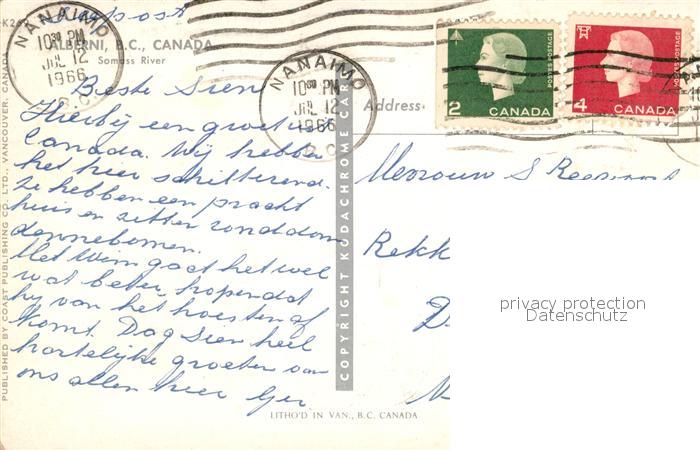 Luchtpost
K242
ALBERNI, B.C., CANADA
Somass River
NANAIMO
10 30 PM
JUL 12
1966
B.C.
NANAIMO
10 30 PM
JUL 12
1966
B.C.
POSTES POSTAGE
2 CANADA
POSTES POSTAGE
4 CANADA
Address
Beste Sien
Hierbij een groet uit
Canada. Wij hebben
het hier schitterend.
Ze hebben een pracht
huis en zitten rondom
dennebomen.
Met Wim gaat het wel
wat beter, hopend dat
hij van het hoesten af
komt. Dag Sien heel
hartelijke groeten van
ons allen hier Ger
Mevrouw S
Rekk
D
PUBLISHED BY COAST PUBLISHING CO. LTD., VANCOUVER, CANADA
COPYRIGHT KODACHROME CARD
LITHO'D IN VAN., B.C. CANADA
privacy protection
Datenschutz